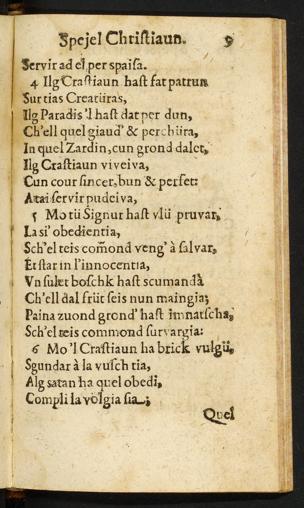 Spejel Christiaun. 9
Servir ad el per spaisa.
4 Ilg Crastiaun hast fat patrun
Sur tias Creatüras,
Ilg Paradis 'l hast dat per dun,
Ch'ell quel giaud' & perchüra,
In quel Zardin, cun grond dalet,
Ilg Crastiaun viveiva,
Cun cour sincer, bun & perfet:
A tai servir pudeiva,
5 Mo tü Signur hast vlü pruvar,
La si' obedientia,
Sch'el teis com̃ond veng' à salvar,
Et star in l'innocentia,
Vn sulet boschk hast scumandà
Ch'ell dal früt seis nun maingia;
Paina zuond grond' hast imnatscha,
Sch'el teis commond survargia:
6 Mo 'l Crastiaun ha brick vulgü,
Sgundar à la vusch tia,
Alg satan ha quel obedi,
Compli la völgia sia,;
Quel